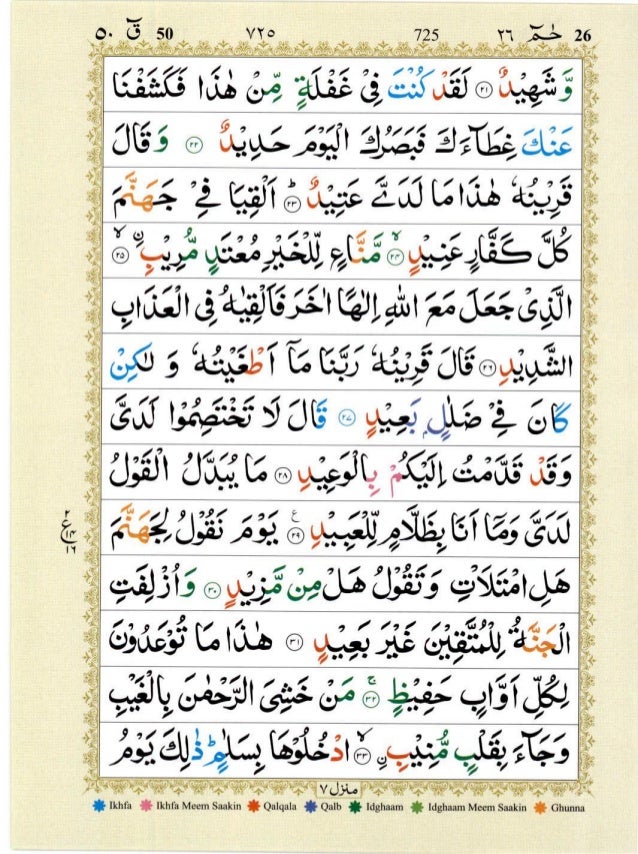 50 قٓ ٥٠
٧٢٥
725
26 حٰمٓ ٢٦
وَّشَهِيْدٌ ﴿٢١﴾ لَقَدْ كُنْتَ فِيْ غَفْلَةٍ مِّنْ هٰذَا فَكَشَفْنَا
عَنْكَ غِطَآءَكَ فَبَصَرُكَ الْيَوْمَ حَدِيْدٌ ﴿٢٢﴾ وَقَالَ
قَرِيْنُهٗ هٰذَا مَا لَدَيَّ عَتِيْدٌ ﴿٢٣﴾ؕ اَلْقِيَا فِيْ جَهَنَّمَ
كُلَّ كَفَّارٍ عَنِيْدٍ ﴿٢٤﴾ۙ مَّنَّاعٍ لِّلْخَيْرِ مُعْتَدٍ مُّرِيْبِ ﴿٢٥﴾ۙ
الَّذِيْ جَعَلَ مَعَ اللّٰهِ اِلٰهًا اٰخَرَ فَاَلْقِيٰهُ فِى الْعَذَابِ
الشَّدِيْدِ ﴿٢٦﴾ قَالَ قَرِيْنُهٗ رَبَّنَا مَآ اَطْغَيْتُهٗ وَ لٰكِنْ
كَانَ فِيْ ضَلٰلٍۢ بَعِيْدٍ ﴿٢٧﴾ قَالَ لَا تَخْتَصِمُوْا لَدَيَّ
وَقَدْ قَدَّمْتُ اِلَيْكُمْ بِالْوَعِيْدِ ﴿٢٨﴾ مَا يُبَدَّلُ الْقَوْلُ
لَدَيَّ وَمَآ اَنَا بِظَلَّامٍ لِّلْعَبِيْدِ ﴿٢٩﴾ يَوْمَ نَقُوْلُ لِجَهَنَّمَ
هَلِ امْتَلَاْتِ وَتَقُوْلُ هَلْ مِنْ مَّزِيْدٍ ﴿٣٠﴾ وَاُزْلِفَتِ
الْجَنَّةُ لِلْمُتَّقِيْنَ غَيْرَ بَعِيْدٍ ﴿٣١﴾ هٰذَا مَا تُوْعَدُوْنَ
لِكُلِّ اَوَّابٍ حَفِيْظٍ ﴿٣٢﴾ۚ مَنْ خَشِيَ الرَّحْمٰنَ بِالْغَيْبِ
وَجَآءَ بِقَلْبٍ مُّنِيْبِ ﴿٣٣﴾ۙ ادْخُلُوْهَا بِسَلٰمٍؕ ذٰلِكَ يَوْمُ
٢
ع ١٤
١٦
منزل ٧
Ikhfa Ikhfa Meem Saakin Qalqala Qalb Idghaam Idghaam Meem Saakin Ghunna